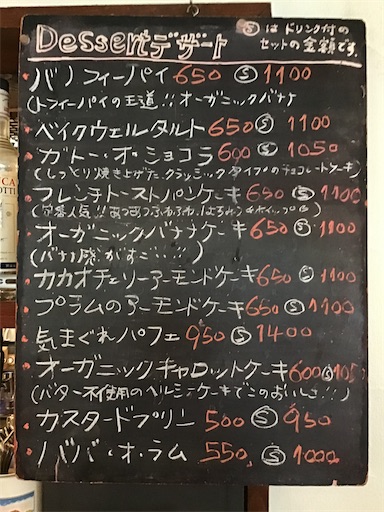 Dessertデザート
Ⓢはドリンク付の
セットの金額です。
バノフィーパイ 650 Ⓢ 1100
(トフィーパイの王道!!オーガニックバナナ
ベイクウェルタルト 650 Ⓢ 1100
ガトー・オ・ショコラ 600 Ⓢ 1050
(しっとり焼き上げた、クラシックタイプのチョコレートケーキ)
フレンチトーストパンケーキ 650 Ⓢ 1100
(定番人気!!あつあつふわふわ、はちみつ
オーガニックバナナケーキ 650 Ⓢ 1100
(バナナ感がすごい!!!)
カカオチェリーアーモンドケーキ 650 Ⓢ 1100
プラムのアーモンドケーキ 650 Ⓢ 1100
気まぐれパフェ 950 Ⓢ 1400
オーガニックキャロットケーキ 600 Ⓢ 105
(バター不使用のヘルシーケーキでこのおいしさ!!)
カスタードプリン 500 Ⓢ 950
ババ・オ・ラム 550 Ⓢ 1000